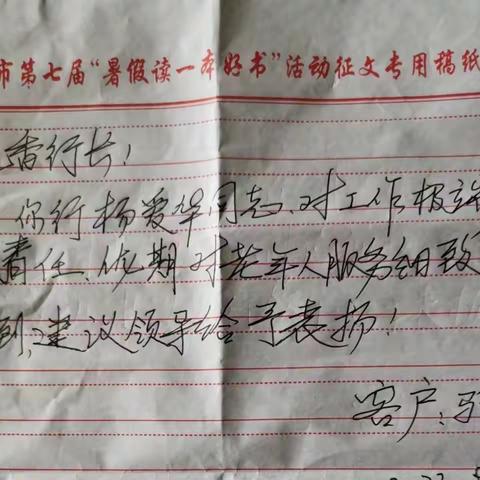 市第七届“暑假读一本好书”活动征文专用稿纸
香行长!
你行杨爱华同志、对工作极
责任、优期对老年人服务细致
到,建议领导给予表扬!
客户: